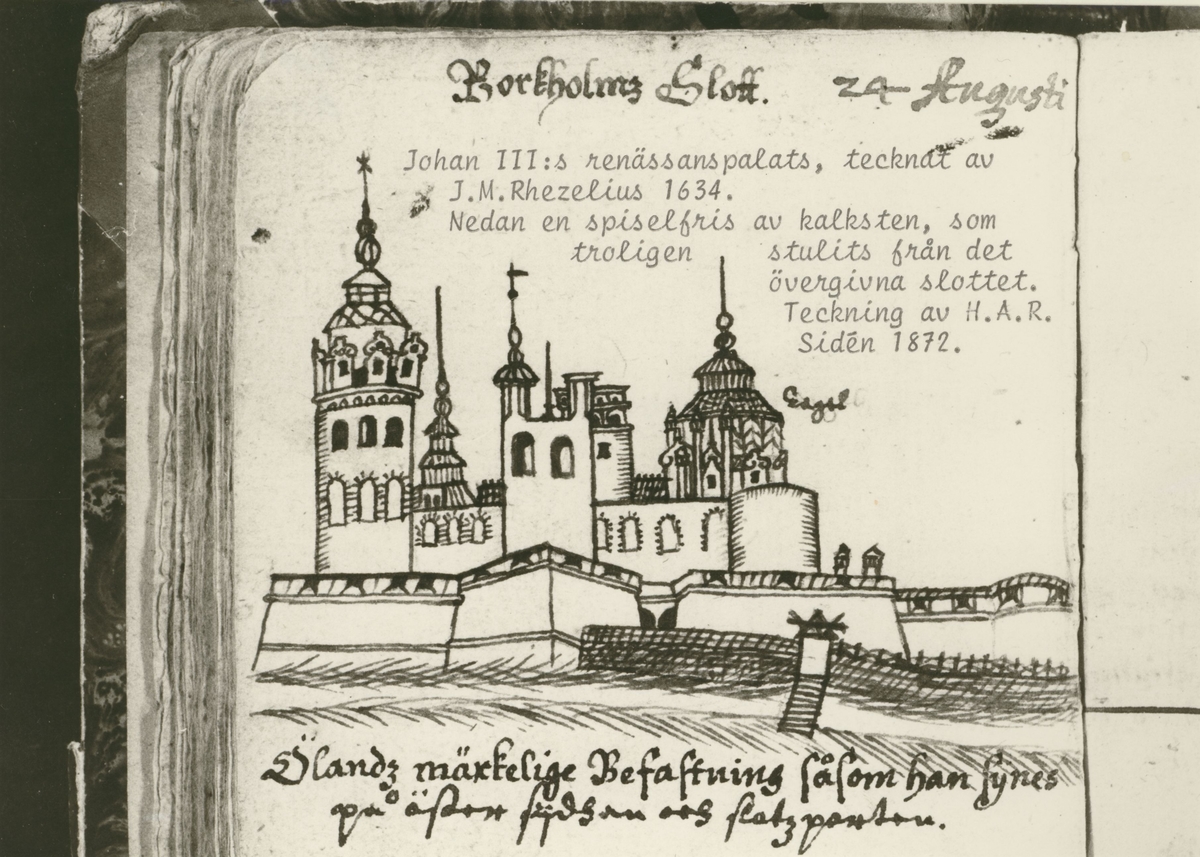 Borkholmz Slott. 24 Augusti
Johan III:s renässanspalats, tecknat av
J.M.Rhezelius 1634.
Nedan en spiselfris av kalksten, som
troligen stulits från det
övergivna slottet.
Teckning av H.A.R.
Sidén 1872.
Ölandz märkelige Befästning såsom han synes
på öster sijdhan och slotz porten.